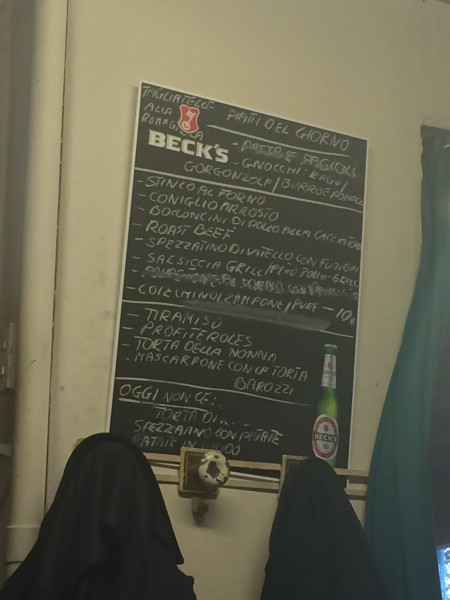 TAGLIATELLE
ALLA
ROMAGNOLA
PIATTI DEL GIORNO
BECK'S
- PASTA E FAGIOLI
- GNOCCHI: RAGU/
GORGONZOLA/BURRO E POMOD
- STINCO AL FORNO
- CONIGLIO ARROSTO
- BOCCONCINI DI POLLO ALLA CACCIATORA
- ROAST BEEF
- SPEZZATINO DI VITELLO CON FUNGHI
- SALSICCIA GRILL/ POLLO-GRILL
- PURE - 10€
- TIRAMISÙ
- PROFITEROLES
- TORTA DELLA NONNA
- MASCARPONE CON LA TORTA
BAROZZI
OGGI NON C'E:..
TORTA DI....
SPEZZATINO CON PATATE
PATATE IN
BECK'S